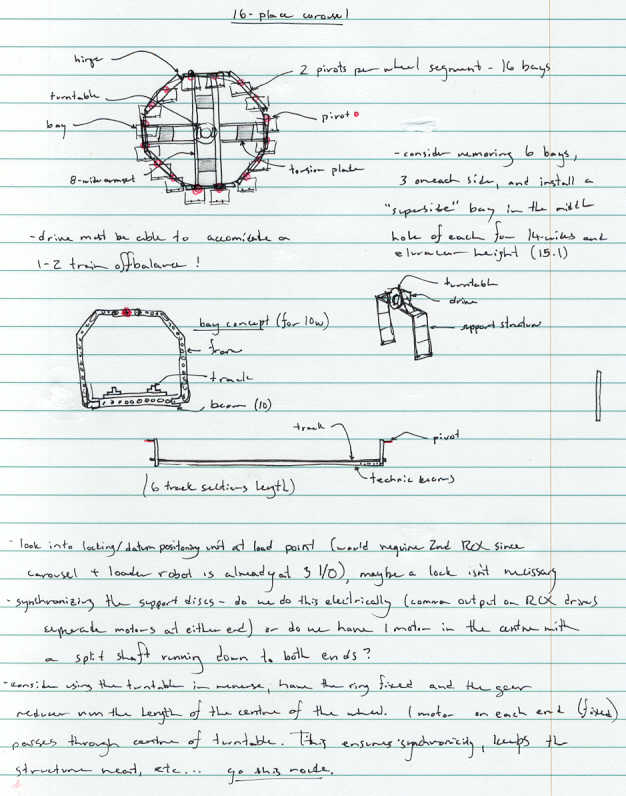 16-place carousel
hinge
2 pivots per wheel segment - 16 bays
turntable
pivot
bay
torsion plate
8-wide
-consider removing 6 bays,
3 on each side, and install a
"superside" bay in the middle
hole of each for 14-wides and
height (15.1)
-drive must be able to accomidate a
1-2 train offbalance!
turntable
drive
support structure
bay concept (for 10w)
frame
track
beam (10)
track
pivot
technic beams
(6 track sections length)
- look into locking/datum positioning unit at load point (would require 2nd RCX since
carousel + loader robot is already at 3 I/O), maybe a lock isn't necessary
- synchronizing the support discs - do we do this electrically (common output on RCX drives
seperate motors at either end) or do we have 1 motor in the centre with
a split shaft running down to both ends?
-consider using the turntable in reverse, have the ring fixed and the gear
reducer run the length of the centre of the wheel. 1 motor on each end (fixed)
passes through centre of turntable. This ensures synchronicity, keeps the
structure neat, etc... go this route.